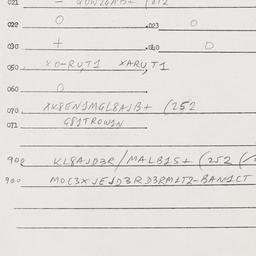 021
022 0 .023 0
030 + .040 0
050 XO-RUT1 XARUT1
060 0
070 XK8EN1MGL8AJB+ (252
071 G81TROW1N
900 KL8AJD3R/MALB15+ (252
900 MOC3XJEJD3RD3RM1T2-BAN1CT